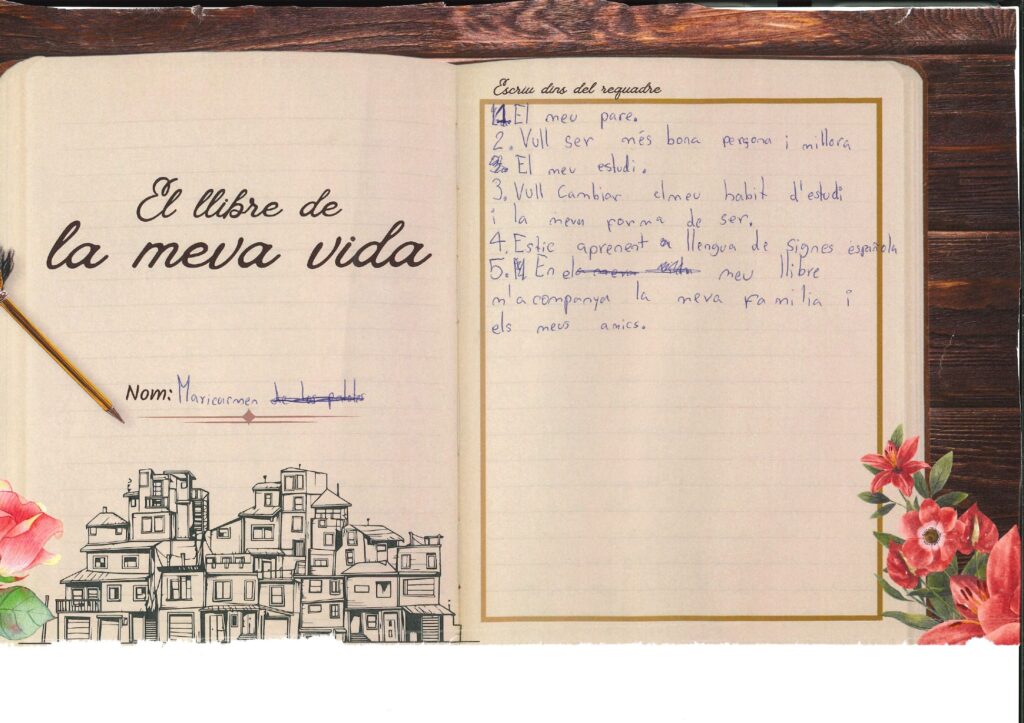 El llibre de
la meva vida
Nom: Maricarmen
Escriu dins del requadre
1. El meu pare.
2. Vull ser més bona persona i millora
El meu estudi.
3. Vull Cambiar elmeu habit d'estudi
i la meva forma de ser.
4. Estic aprenent llengua de signes española
5. En el meu llibre
m'acompanya la meva familia i
els meus amics.